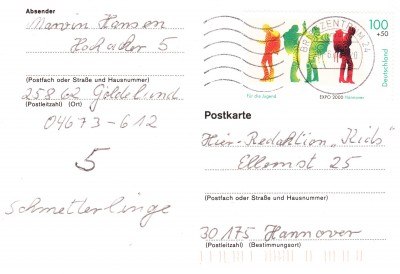 Absender
Marvin Hansen
Holacker 5
(Postfach oder Straße und Hausnummer)
25862 Goldelund
(Postleitzahl) (Ort)
04673-612
5
Schmetterlinge
100
+50
Deutschland
Für die Jugend
EXPO 2000 Hannover
BRIEFZENTRUM 24
Postkarte
Hier-Redaktion „Kids"
Ellernst 25
(Postfach oder Straße und Hausnummer)
30175 Hannover
(Postleitzahl) (Bestimmungsort)